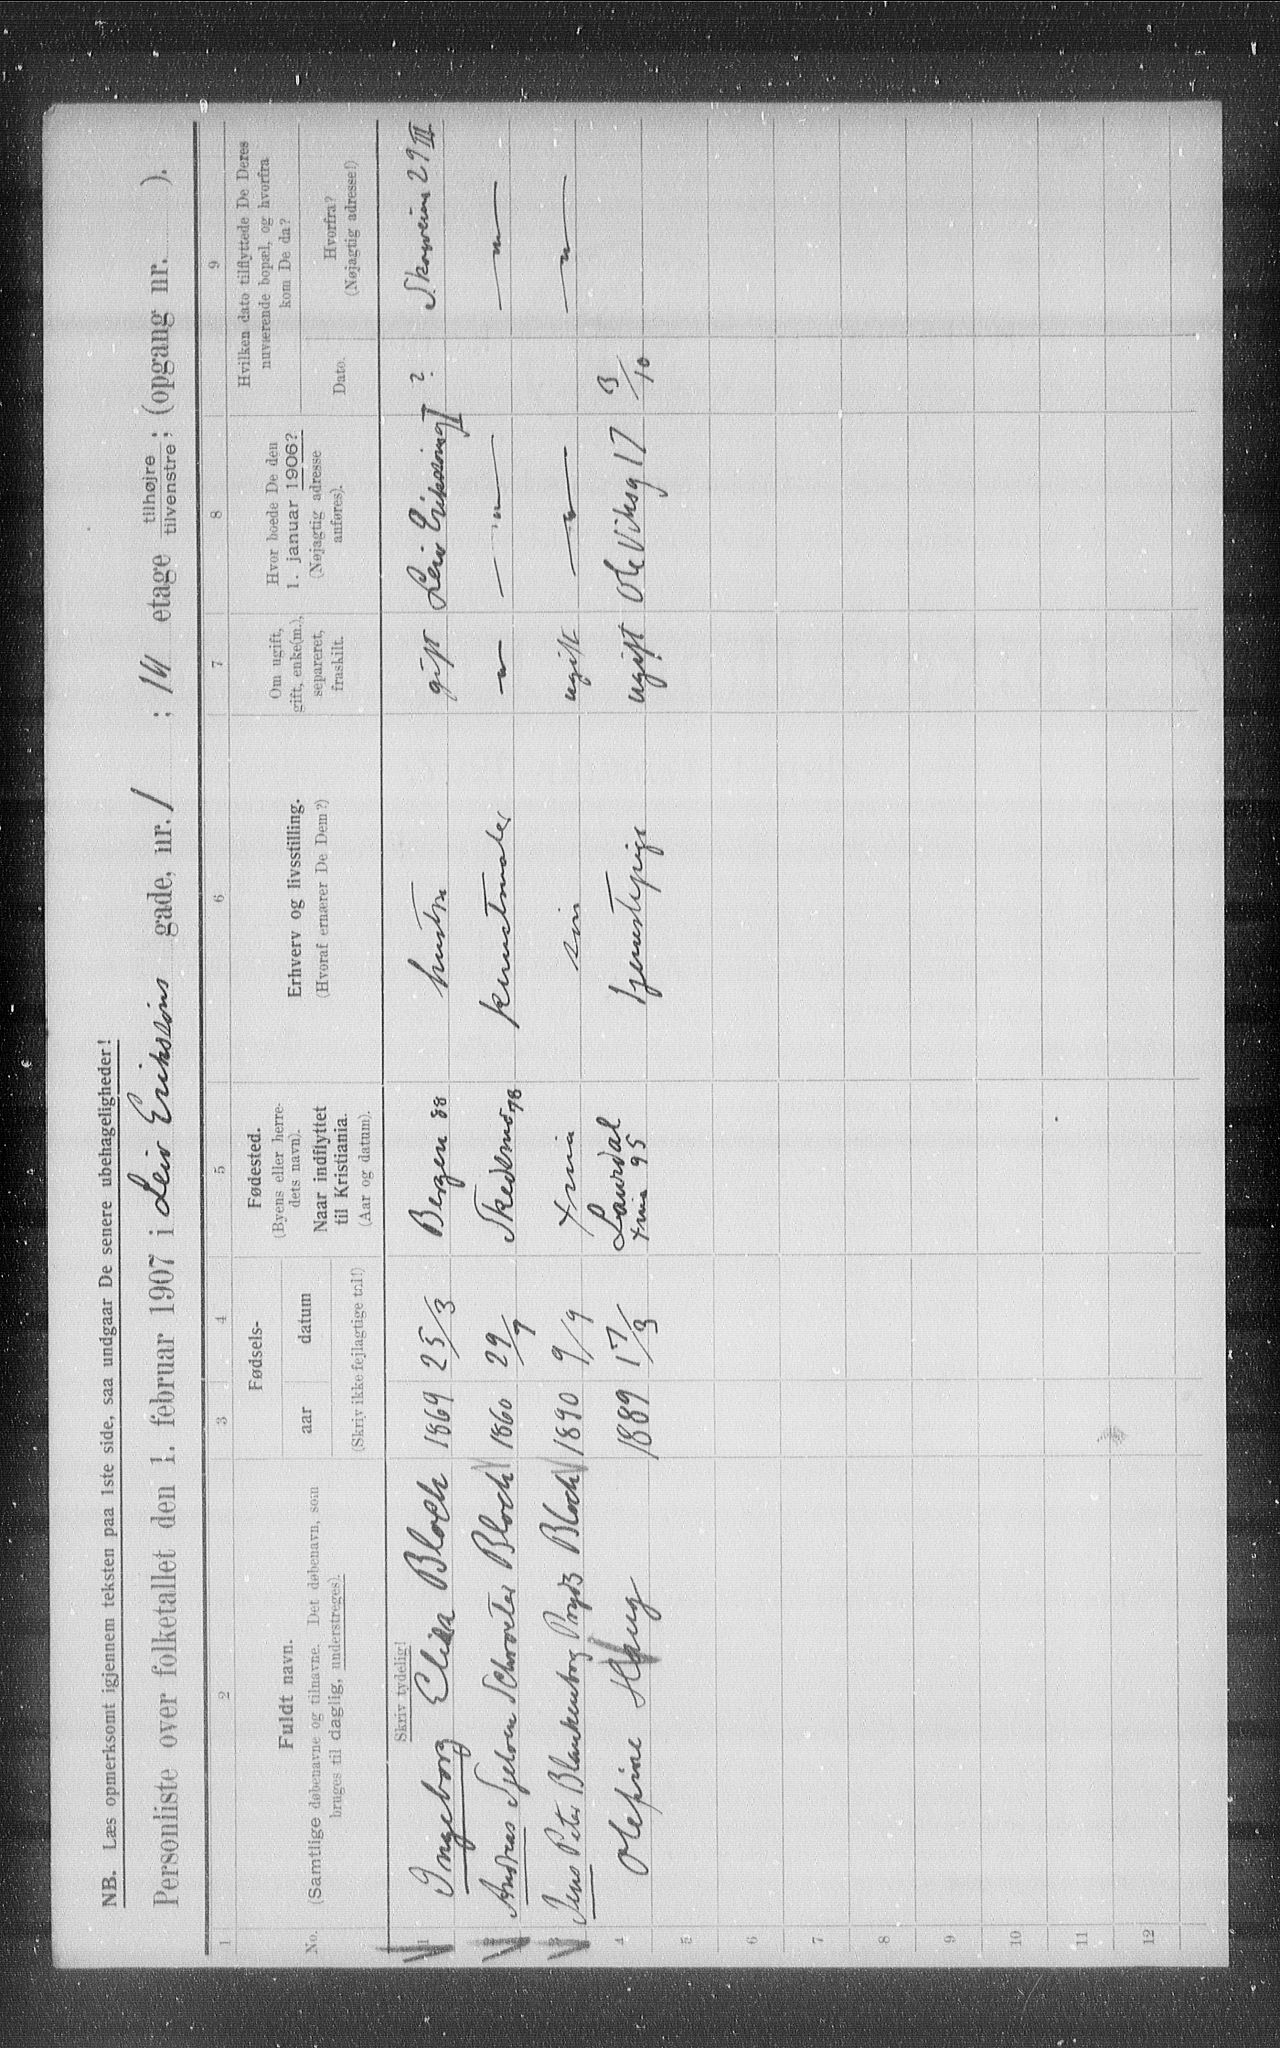 NB. Læs opmerksomt igjennem teksten paa 1ste side, saa undgaar De senere ubehageligheder!
Personliste over folketallet den 1. februar 1907 i Leiv Eriksøns gade, nr. 1 ; etage tilhøjre tilvenstre; (opgang nr. ).
1 2 3 4 5 6 7 8 9
No.
Fuldt navn.
(Samtlige døbenavne og tilnavne. Det døbenavn, som
bruges til daglig, understreges).
Fødsels-
aar datum
(Skriv ikke fejlagtige tal!)
Fødested.
(Byens eller herre-
dets navn).
Naar indflyttet
til Kristiania.
(Aar og datum).
Erhverv og livsstilling.
(Hvoraf ernærer De Dem?)
Om ugift,
gift, enke(m.),
separeret,
fraskilt.
Hvor boede De den
1. januar 1906?
(Nøjagtig adresse
anføres).
Hvilken dato tilflyttede De Deres
nuværende bopæl, og hvorfra
kom De da?
Dato.
Hvorfra?
(Nøjagtig adresse!)
Skriv tydelig!
1 Ingeborg Elisa Bloch 1869 25/3 Bergen 88 hustru gift Leiv Eriksøns I ? 29 III
2 Andreas Schroeter Bloch 1860 29/7 Skedsmo 78 kunstmaler — " — — " — — " —
3 Jens Peter Blankenborg Prydz Bloch 1890 9/9 Xnia søn ugift — " — — " —
4 Olefine Haug 1889 17/3 Laurdal ugift Ole Viksg 17 3/10
Xnia 95 tjenestepige
5
6
7
8
9
10
11
12